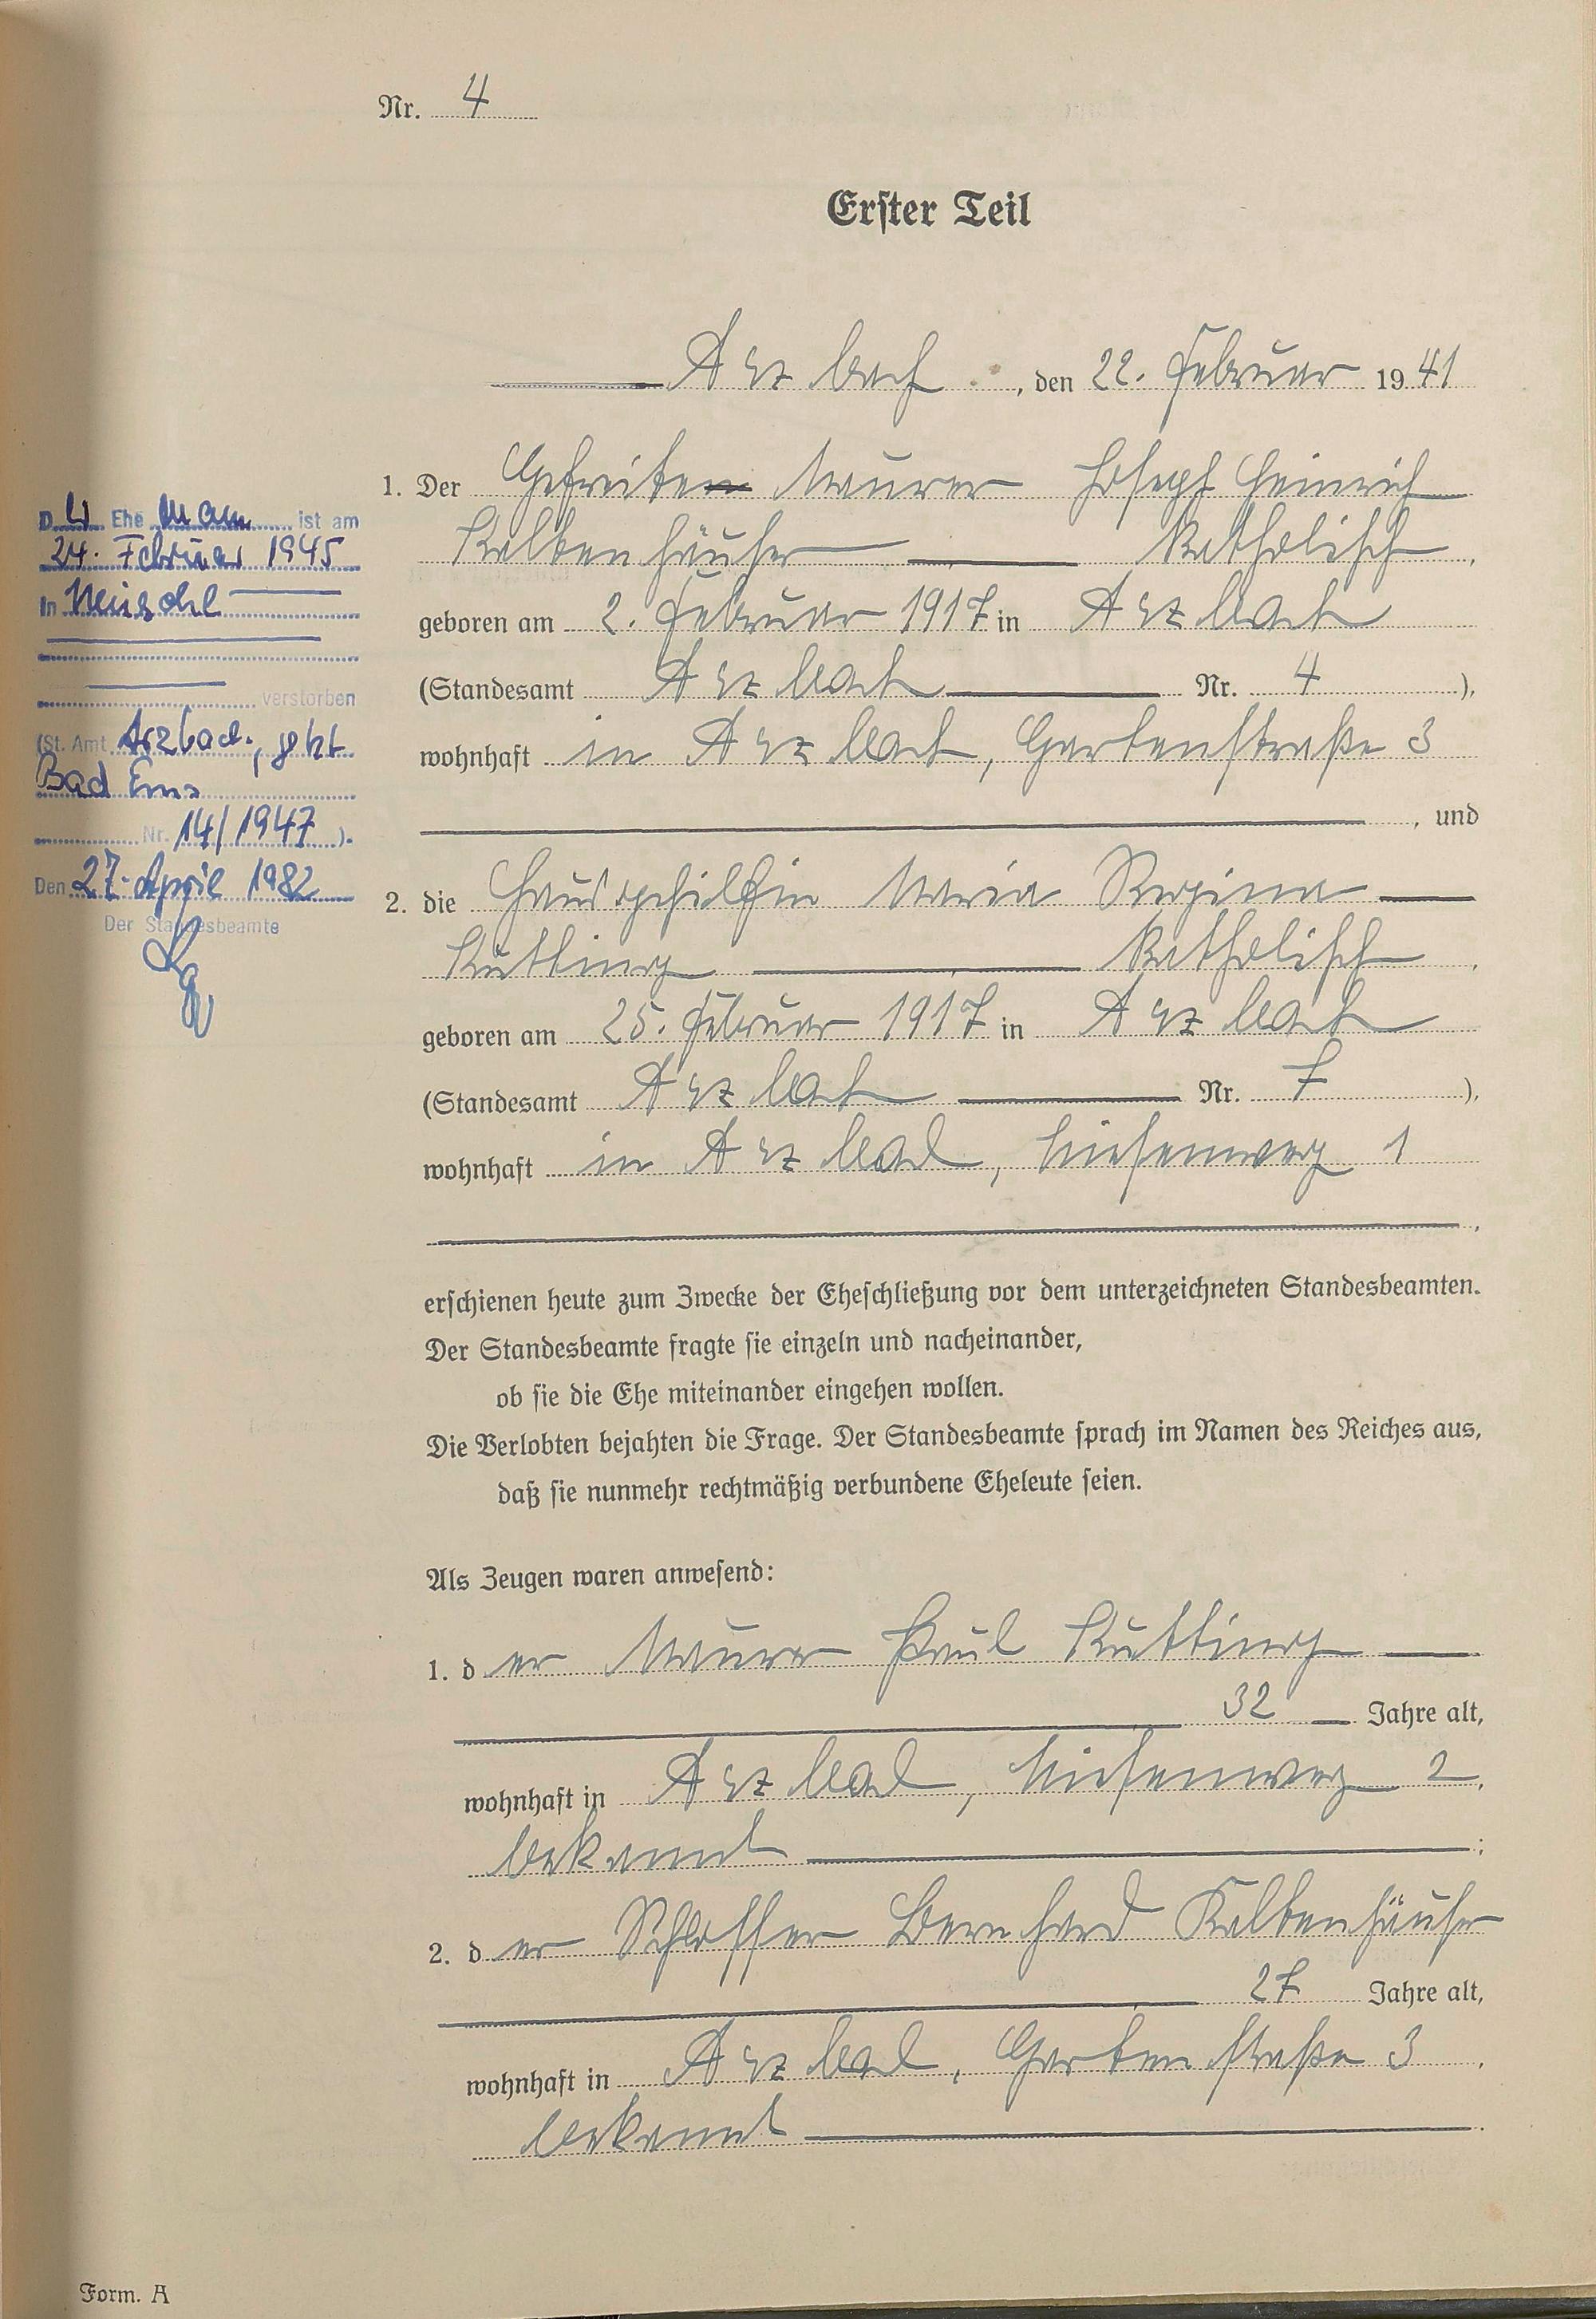 Nr. 4
Erster Teil
Arzbach, den 22. Februar 1941
1. Der Gefreite Maurer Joseph Heinrich
Kaltenhäuser katholisch,
geboren am 2. Februar 1917 in Arzbach
(Standesamt Arzbach Nr. 4),
wohnhaft in Arzbach, Gartenstraße 3
, und
2. die Hausgehilfin Maria Regina
Kutting katholisch,
geboren am 25. Februar 1917 in Arzbach
(Standesamt Arzbach Nr. 7),
wohnhaft in Arzbach, Wiesenweg 1
,
erschienen heute zum Zwecke der Eheschließung vor dem unterzeichneten Standesbeamten.
Der Standesbeamte fragte sie einzeln und nacheinander,
ob sie die Ehe miteinander eingehen wollen.
Die Verlobten bejahten die Frage. Der Standesbeamte sprach im Namen des Reiches aus,
daß sie nunmehr rechtmäßig verbundene Eheleute seien.
Als Zeugen waren anwesend:
1. der Maurer Paul Kutting
32 Jahre alt,
wohnhaft in Arzbach, Wiesenweg 2,
bekannt;
2. der Schlosser Bernhard Kaltenhäuser
27 Jahre alt,
wohnhaft in Arzbach, Gartenstraße 3,
bekannt.
Der Ehemann ist am
24. Februar 1945
in Neusohl
verstorben
(St. Amt Arzbach, jetzt
Bad Ems
Nr. 14/1947).
Den 27. April 1982
Der Standesbeamte
Form. A